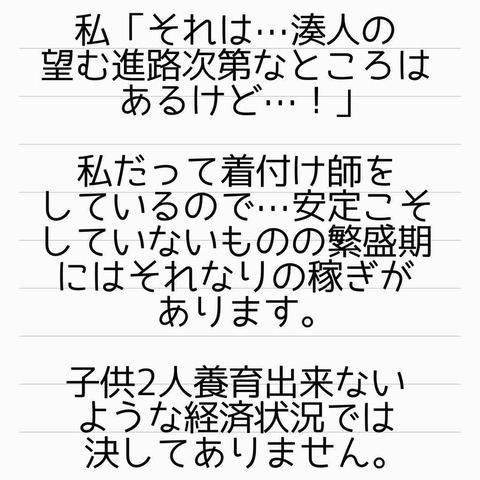 私「それは…湊人の
望む進路次第なところは
あるけど…！」
私だって着付け師を
しているので…安定こそ
していないものの繁盛期
にはそれなりの稼ぎが
あります。
子供2人養育出来ない
ような経済状況では
決してありません。